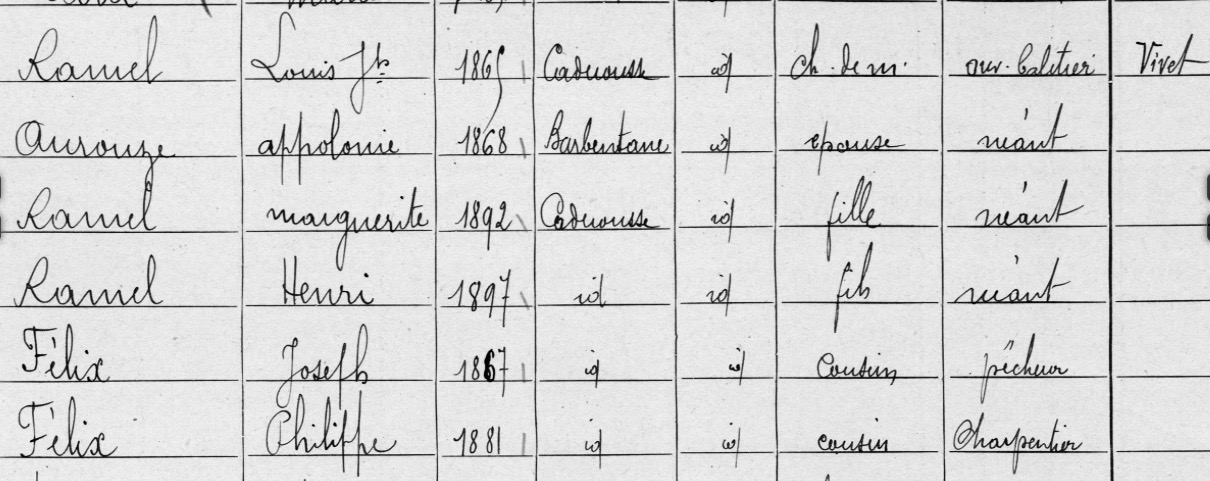 Ramel Louis Jh 1865 Caderousse id ch. de m. ouv. baletier Vivet
Aurouze appolonie 1868 Barbentane id epouse néant
Ramel marguerite 1892 Caderousse id fille néant
Ramel Henri 1897 id id fils néant
Félix Joseph 1867 id id cousin pêcheur
Félix Philippe 1881 id id cousin Charpentier